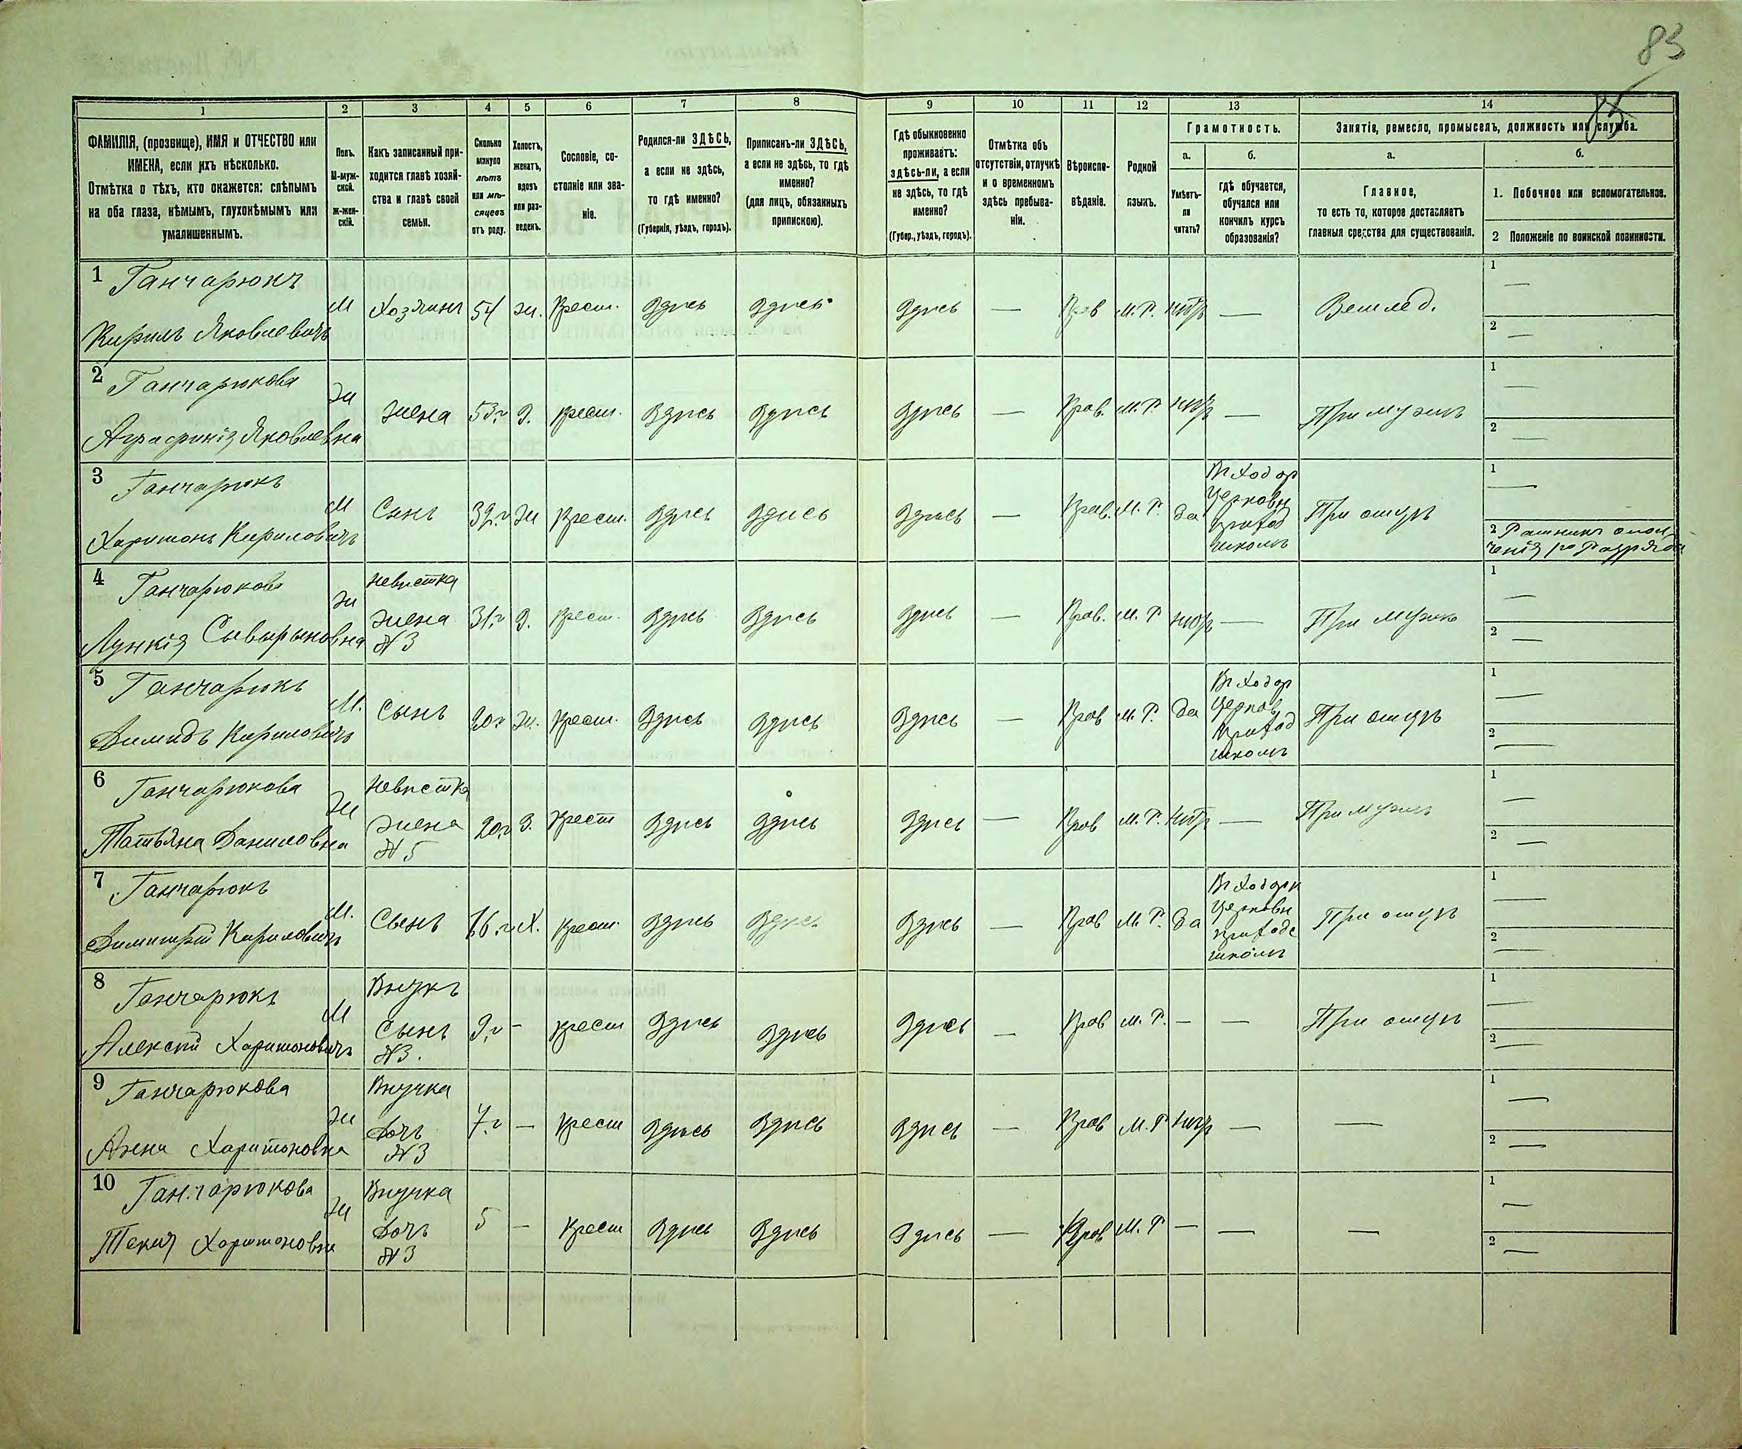 83
85
1 2 3 4 5 6 7 8 9 10 11 12 13 14
ФАМИЛІЯ, (прозвище), ИМЯ и ОТЧЕСТВО или
ИМЕНА, если ихъ нѣсколько.
Отмѣтка о тѣхъ, кто окажется: слѣпымъ
на оба глаза, нѣмымъ, глухонѣмымъ или
умалишеннымъ.
Полъ.
М-муж-
ской.
Ж-жен-
скій.
Какъ записанный при-
ходится главѣ хозяй-
ства и главѣ своей
семьи.
Сколько
минуло
лѣтъ
или мѣ-
сяцевъ
отъ роду.
Холостъ,
женатъ,
вдовъ
или раз-
веденъ.
Сословіе, со-
стояніе или зва-
ніе.
Родился-ли ЗДѢСЬ,
а если не здѣсь,
то гдѣ именно?
(Губернія, уѣздъ, городъ).
Приписанъ-ли ЗДѢСЬ,
а если не здѣсь, то гдѣ
именно?
(для лицъ, обязанныхъ
припискою).
Гдѣ обыкновенно
проживаетъ:
здѣсь-ли, а если
не здѣсь, то гдѣ
именно?
(Губер., уѣздъ, городъ).
Отмѣтка объ
отсутствіи, отлучкѣ
и о временномъ
здѣсь пребыва-
ніи.
Вѣроиспо-
вѣданіе.
Родной
языкъ.
Грамотность.
а.
Умѣетъ-
ли
читать?
б.
гдѣ обучается,
обучался или
кончилъ курсъ
образованія?
Занятія, ремесло, промыселъ, должность или служба.
а.
Главное,
то есть то, которое доставляетъ
главныя средства для существованія.
б.
1. Побочное или вспомогательное.
2 Положеніе по воинской повинности.
1 Ганчарюкъ
Кирилъ Яковлевичъ
М Хозяинъ 54 Ж. Крест. Здѣсь Здѣсь Здѣсь — Прав М. Р. нѣтъ — Землед. 1 — 2 —
2 Ганчарюкова
Аграфинія Яковлевна
Ж жена 53. З. Крест. Здѣсь Здѣсь Здѣсь — Прав. М. Р. нѣтъ — При мужѣ 1 — 2 —
3 Ганчарюкъ
Харитонъ Кириловичъ
М Сынъ 32. Ж Крест. Здѣсь Здѣсь Здѣсь — Прав. М. Р. да
Церковн
приход
школѣ
При отцѣ 1 —
2 Ратникъ опол
ченія
4 Ганчарюкова
Лукія Сывырыновна
Ж
невѣстка
жена
№3
31. З. Крест. Здѣсь Здѣсь Здѣсь — Прав. М. Р нѣтъ — При мужѣ 1 — 2 —
5 Ганчарюкъ
Димидъ Кириловичъ
М. Сынъ 20 Ж. Крест. Здѣсь Здѣсь Здѣсь — Прав М. Р. да
Церков
приход
школѣ
При отцѣ 1 — 2 —
6 Ганчарюкова
Татьяна Даниловна
Ж
невѣстка
жена
№5
20. З. Крест Здѣсь Здѣсь Здѣсь — Прав М. Р. нѣтъ — При мужѣ 1 — 2 —
7 Ганчарюкъ
Димитрій Кириловичъ
М. Сынъ 16. Х. Крест. Здѣсь Здѣсь Здѣсь — Прав М. Р. да
Церковн
приходс
школѣ
При отцѣ 1 — 2 —
8 Ганчарюкъ
Алексѣй Харитоновичъ
М
Внукъ
Сынъ
№3.
9. — Крест Здѣсь Здѣсь Здѣсь — Прав М. Р. — — При отцѣ 1 — 2 —
9 Ганчарюкова
Анна Харитоновна
Ж
Внучка
Дочь
№3
7. — Крест Здѣсь Здѣсь Здѣсь — Прав М. Р нѣтъ — — 1 — 2 —
10 Ганчарюкова
Текля Харитоновна
Ж
Внучка
Дочь
№3
5 — Крест Здѣсь Здѣсь Здѣсь — Прав М. Р — — — 1 — 2 —